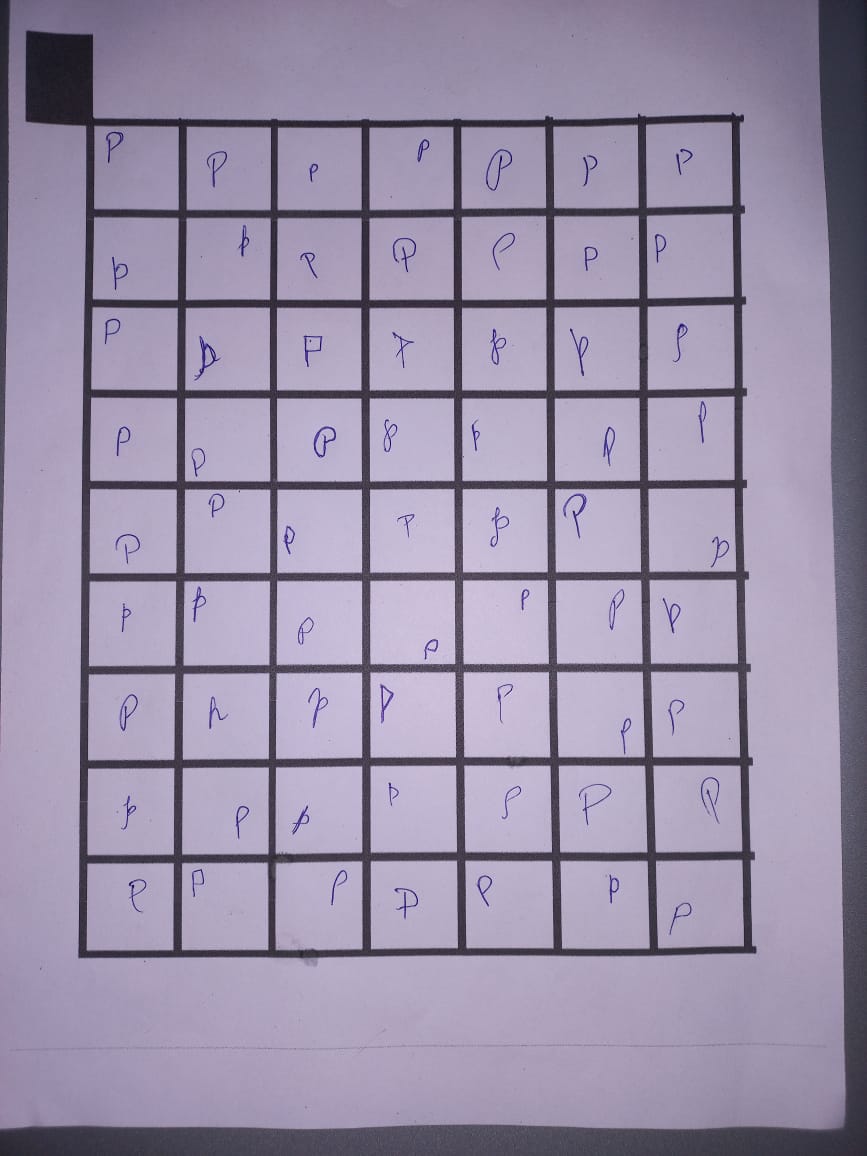 P P P P P P P
p p P P P P P
P p P P p p P
P P P P p P P
P P P P p P p
p p P P P P p
P p p P P P P
p P p p P P P
P P P P P p P